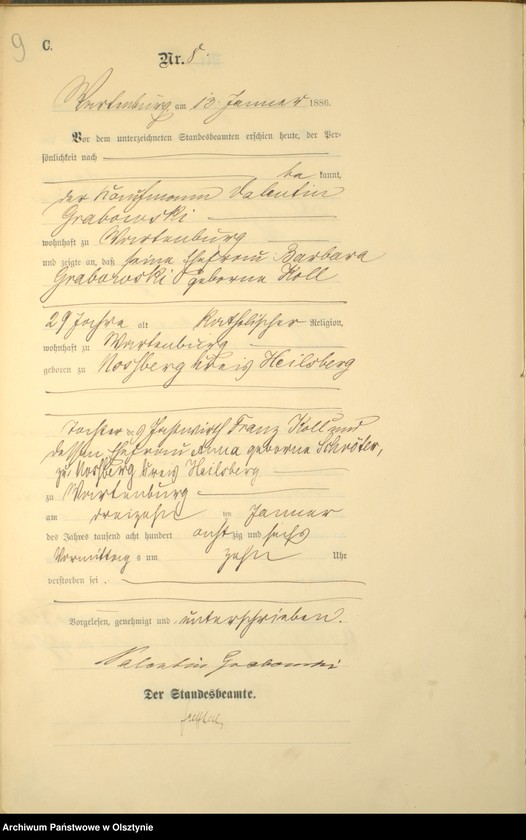 9
C.
Nr. 8.
Wartenburg am 13. Januar 1886.
Vor dem unterzeichneten Standesbeamten erschien heute, der Per-
sönlichkeit nach
be kannt,
der Kaufmann Valentin
Grabowski
wohnhaft zu Wartenburg
und zeigte an, daß seine Ehefrau Barbara
Grabowski geborne Koll
29 Jahre alt katholischer Religion,
wohnhaft zu Wartenburg
geboren zu Noßberg Kreis Heilsberg
Tochter des Gastwirth Franz Koll und
dessen Ehefrau Anna geborne Schröter,
zu Noßberg Kreis Heilsberg
zu Wartenburg
am dreizehn ten Januar
des Jahres tausend acht hundert acht zig und sechs
Vormittag s um zehn Uhr
verstorben sei.
Vorgelesen, genehmigt und unterschrieben.
Valentin Grabowski
Der Standesbeamte.
Archiwum Państwowe w Olsztynie